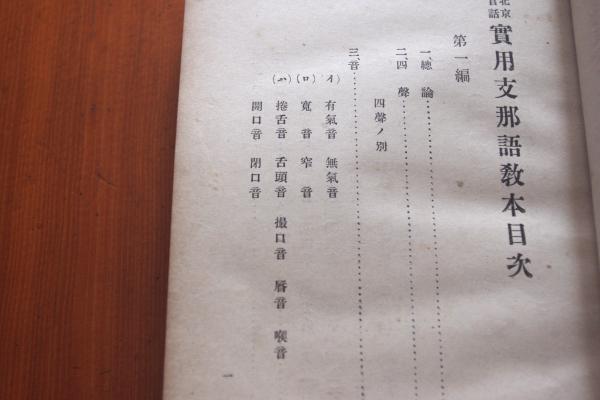 北京官話
實用支那語教本目次
第一編
一、總論
二、四聲
四聲ノ別
三、音
(イ) 有氣音 無氣音
(ロ) 寬音 窄音
(ハ) 捲舌音 舌頭音 撮口音 唇音 喉音
開口音 閉口音
一